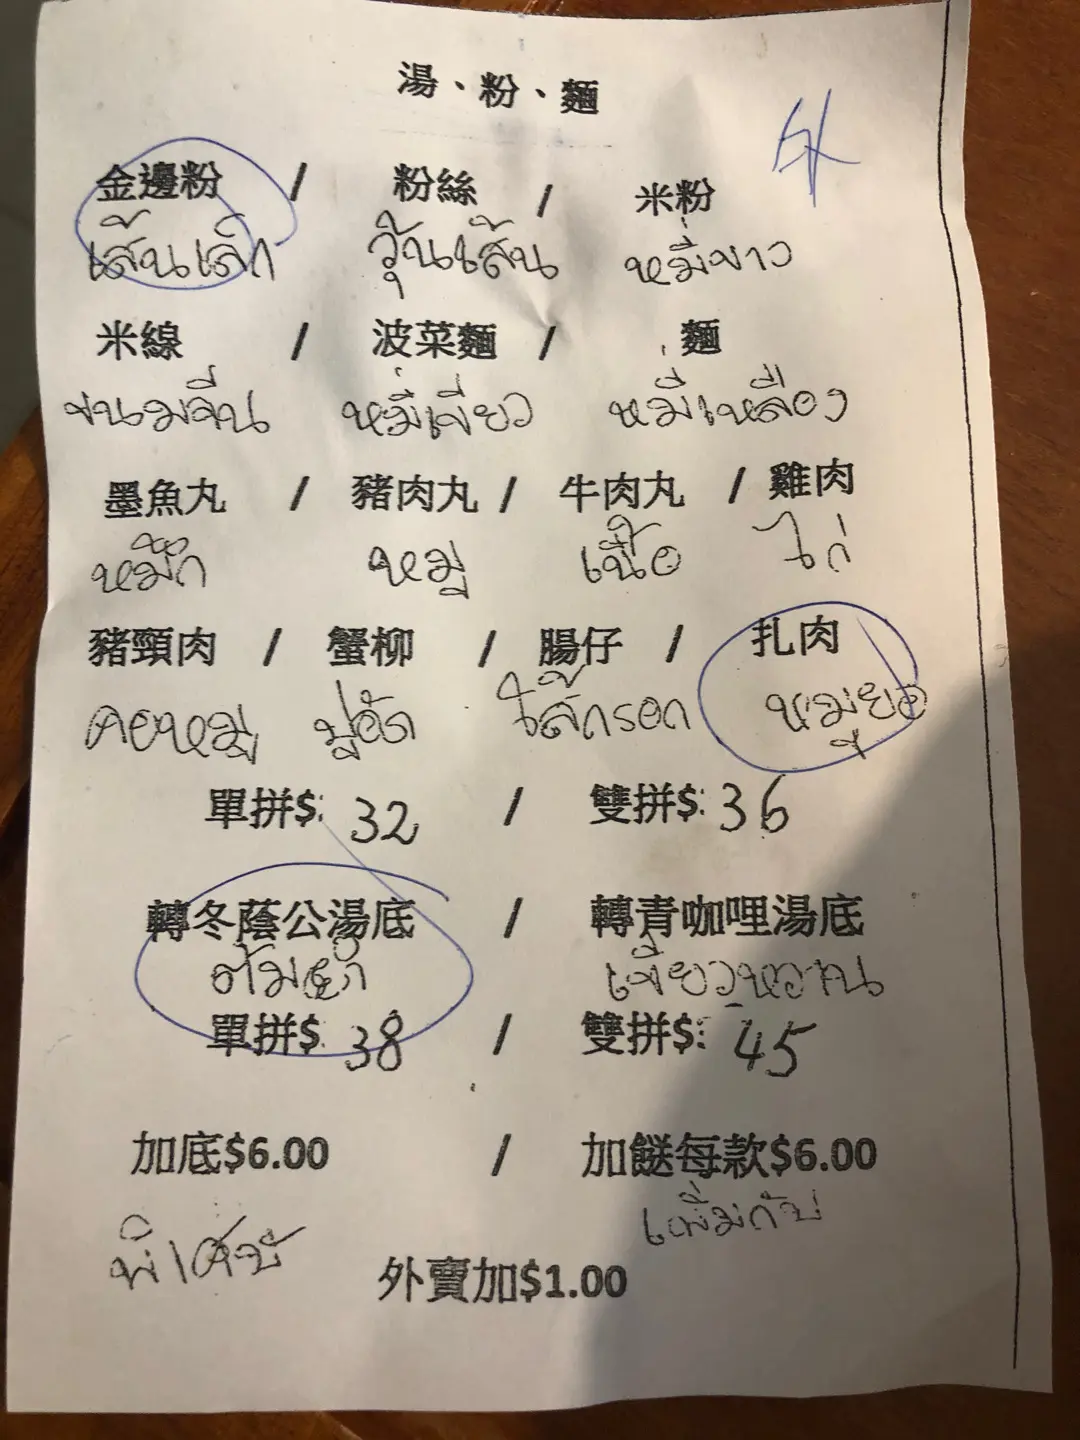 湯、粉、麵
外
金邊粉 / 粉絲 / 米粉
เส้นเล็ก วุ้นเส้น หมี่ขาว
米線 / 波菜麵 / 麵
ขนมจีน หมี่เขียว หมี่เหลือง
墨魚丸 / 豬肉丸 / 牛肉丸 / 雞肉
หมึก หมู เนื้อ ไก่
豬頸肉 / 蟹柳 / 腸仔 / 扎肉
คอหมู ปูอัด ไส้กรอก หมูยอ
單拼$: 32 / 雙拼$: 36
轉冬蔭公湯底 / 轉青咖哩湯底
ต้มยำ เขียวหวาน
單拼$ 38 / 雙拼$: 45
加底$6.00 / 加餸每款$6.00
พิเศษ เพิ่มกับ
外賣加$1.00